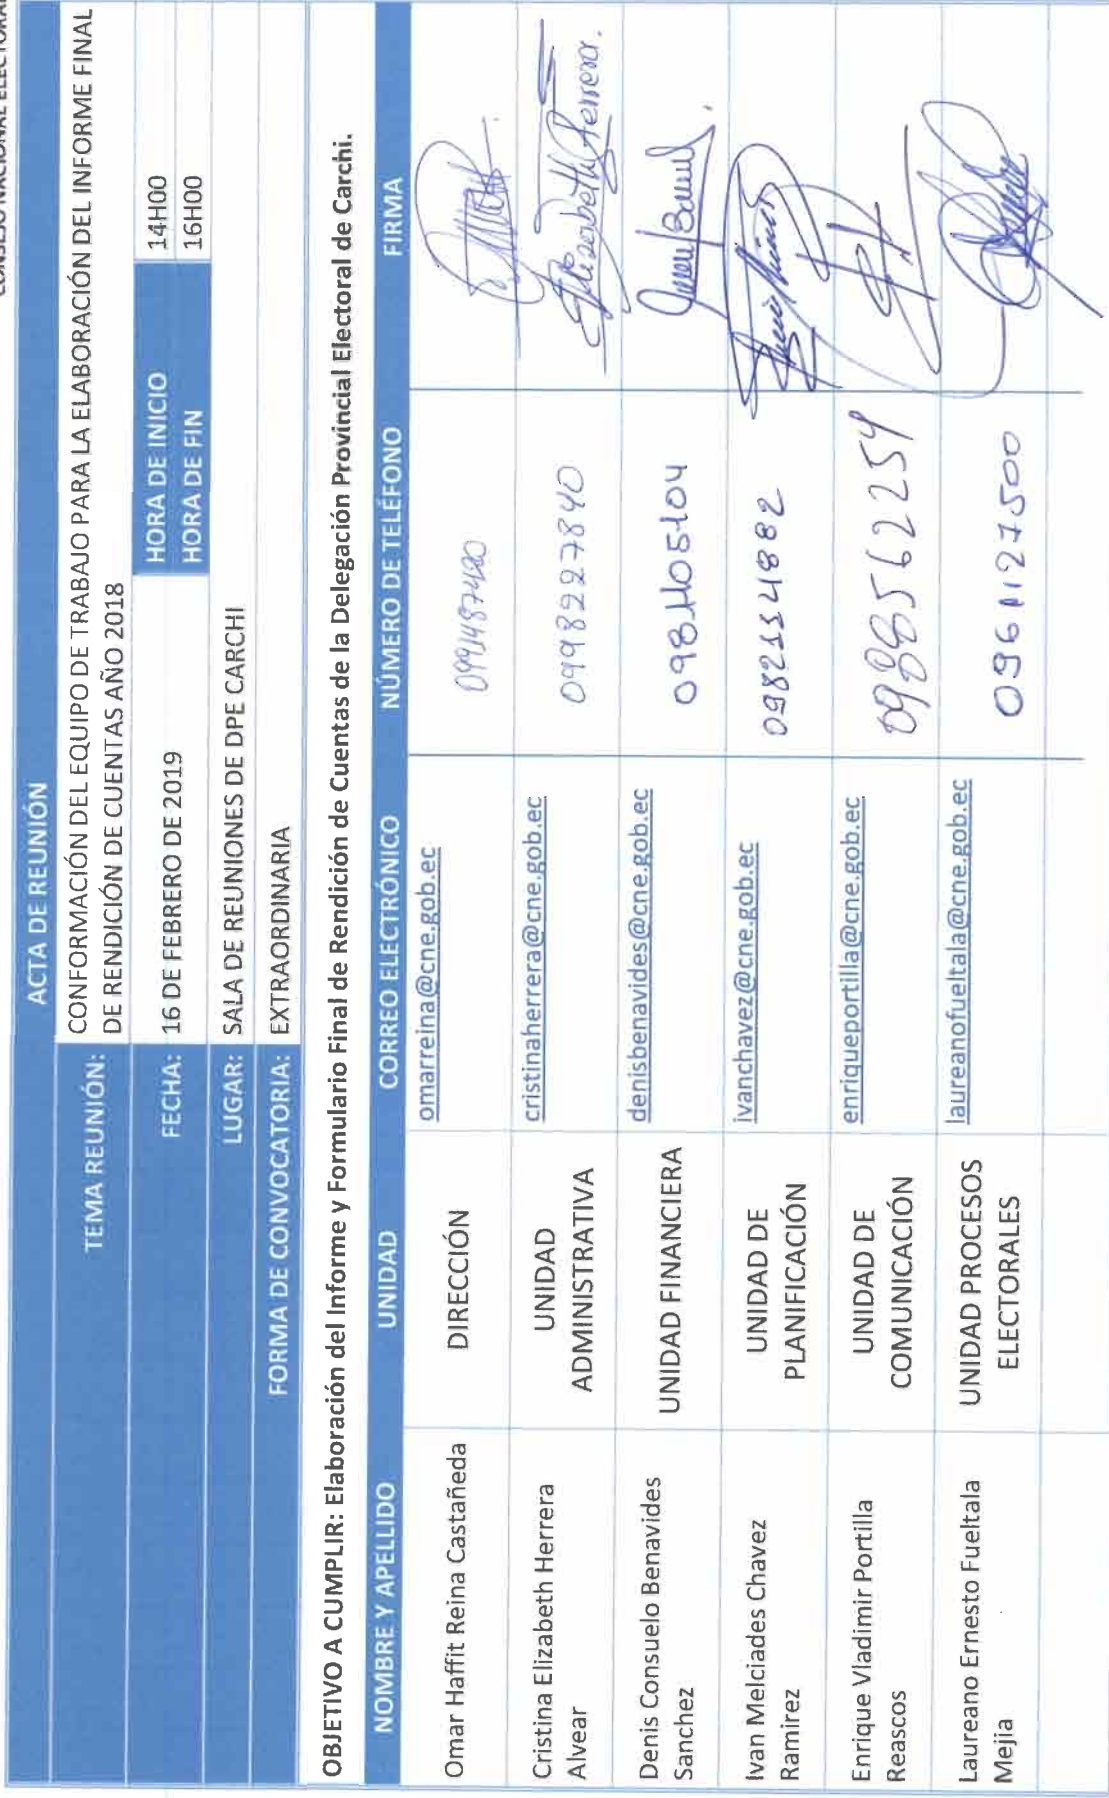 CONSEJO NACIONAL ELECTORAL
ACTA DE REUNIÓN
TEMA REUNIÓN: CONFORMACIÓN DEL EQUIPO DE TRABAJO PARA LA ELABORACIÓN DEL INFORME FINAL
DE RENDICIÓN DE CUENTAS AÑO 2018
FECHA: 16 DE FEBRERO DE 2019 HORA DE INICIO 14H00
HORA DE FIN 16H00
LUGAR: SALA DE REUNIONES DE DPE CARCHI
FORMA DE CONVOCATORIA: EXTRAORDINARIA
OBJETIVO A CUMPLIR: Elaboración del Informe y Formulario Final de Rendición de Cuentas de la Delegación Provincial Electoral de Carchi.
NOMBRE Y APELLIDO UNIDAD CORREO ELECTRÓNICO NÚMERO DE TELÉFONO FIRMA
Omar Haffit Reina Castañeda DIRECCIÓN omarreina@cne.gob.ec
Cristina Elizabeth Herrera
Alvear
UNIDAD
ADMINISTRATIVA
cristinaherrera@cne.gob.ec 0998227840 Elizabeth Herrera.
Denis Consuelo Benavides
Sanchez
UNIDAD FINANCIERA denisbenavides@cne.gob.ec
Ivan Melciades Chavez
Ramirez
UNIDAD DE
PLANIFICACIÓN
ivanchavez@cne.gob.ec 0982114882
Enrique Vladimir Portilla
Reascos
UNIDAD DE
COMUNICACIÓN
enriqueportilla@cne.gob.ec 0985562254
Laureano Ernesto Fueltala
Mejia
UNIDAD PROCESOS
ELECTORALES
laureanofueltala@cne.gob.ec 0961127500